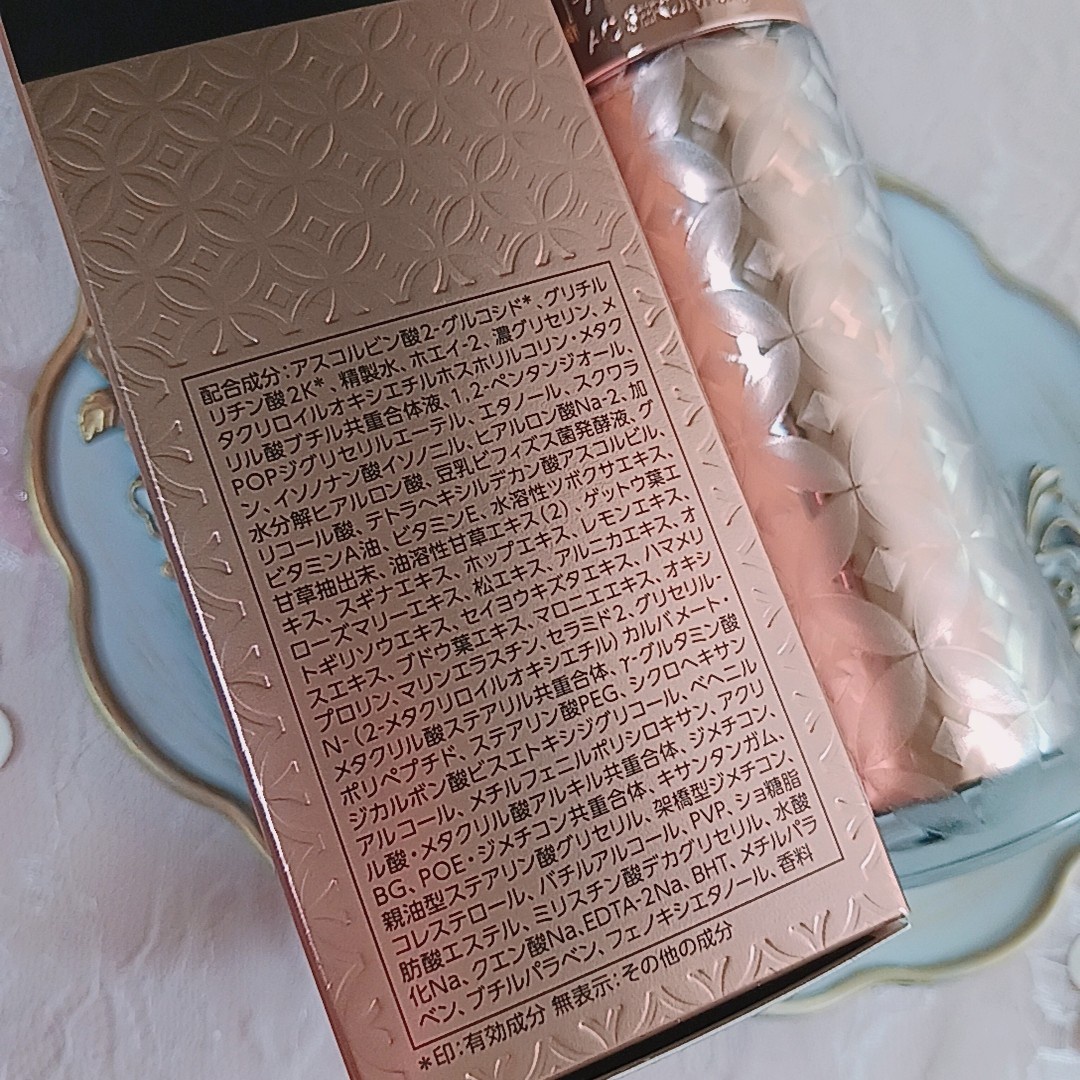 配合成分：アスコルビン酸2-グルコシド*、グリチル
リチン酸2K*、精製水、ホエイ-2、濃グリセリン、メ
タクリロイルオキシエチルホスホリルコリン・メタク
リル酸ブチル共重合体液、1,2-ペンタンジオール、
POPジグリセリルエーテル、エタノール、スクワラ
ン、イソノナン酸イソノニル、ヒアルロン酸Na-2、加
水分解ヒアルロン酸、豆乳ビフィズス菌発酵液、グ
リコール酸、テトラヘキシルデカン酸アスコルビル、
ビタミンA油、ビタミンE、水溶性ツボクサエキス、
甘草抽出末、油溶性甘草エキス(2)、ゲットウ葉エ
キス、スギナエキス、ホップエキス、レモンエキス、
ローズマリーエキス、松エキス、アルニカエキス、オ
トギリソウエキス、セイヨウキズタエキス、ハマメリ
スエキス、ブドウ葉エキス、マロニエエキス、オキシ
プロリン、マリンエラスチン、セラミド2、グリセリル-
N-(2-メタクリロイルオキシエチル)カルバメート・
メタクリル酸ステアリル共重合体、γ-グルタミン酸
ポリペプチド、ステアリン酸PEG、シクロヘキサン
ジカルボン酸ビスエトキシジグリコール、ベヘニル
アルコール、メチルフェニルポリシロキサン、アクリ
ル酸・メタクリル酸アルキル共重合体、ジメチコン、
BG、POE・ジメチコン共重合体、キサンタンガム、
親油型ステアリン酸グリセリル、架橋型ジメチコン、
コレステロール、バチルアルコール、PVP、ショ糖脂
肪酸エステル、ミリスチン酸デカグリセリル、水酸
化Na、クエン酸Na、EDTA-2Na、BHT、メチルパラ
ベン、ブチルパラベン、フェノキシエタノール、香料
*印：有効成分 無表示：その他の成分